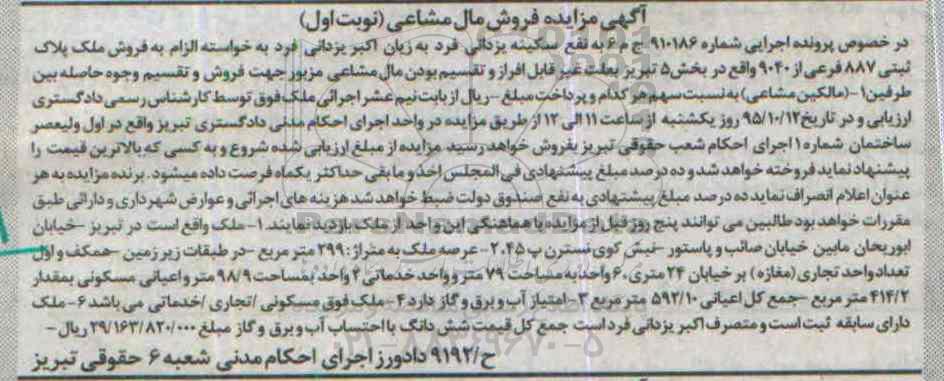 آگهی مزایده فروش مال مشاعی (نوبت اول)
در خصوص پرونده اجرایی شماره ۹۱۰۱۸۶ ج م ۶ به نفع سکینه یزدانی فرد به زیان اکبر یزدانی فرد به خواسته الزام به فروش ملک پلاک
ثبتی ۸۸۷ فرعی از ۹۰۴۰ واقع در بخش ۵ تبریز بعلت غیر قابل افراز و تقسیم بودن مال مشاعی مزبور جهت فروش و تقسیم وجوه حاصله بین
طرفین ۱-(مالکین مشاعی) به نسبت سهم هر کدام و پرداخت مبلغ -ریال از بابت نیم عشر اجرائی ملک فوق توسط کارشناس رسمی دادگستری
ارزیابی و در تاریخ ۹۵/۱۰/۱۲ روز یکشنبه از ساعت ۱۱ الی ۱۲ از طریق مزایده در واحد اجرای احکام مدنی دادگستری تبریز واقع در اول ولیعصر
ساختمان شماره ۱ اجرای احکام شعب حقوقی تبریز بفروش خواهد رسید مزایده از مبلغ ارزیابی شده شروع و به کسی که بالاترین قیمت را
پیشنهاد نماید فروخته خواهد شد و ده درصد مبلغ پیشنهادی فی المجلس اخذ و مابقی حداکثر یکماه فرصت داده میشود. برنده مزایده به هر
عنوان اعلام انصراف نماید ده درصد مبلغ پیشنهادی به نفع صندوق دولت ضبط خواهد شد هزینه های اجرائی و عوارض شهرداری و دارائی طبق
مقررات خواهد بود طالبین می توانند پنج روز قبل از مزایده با هماهنگی این واحد از ملک بازدید نمایند. ۱- ملک واقع است در تبریز -خیابان
ابوریحان مابین خیابان صائب و پاستور -نبش کوی نسترن پ ۲.۴۵- عرصه ملک به متراژ: ۲۹۹ متر مربع -در طبقات زیر زمین -همکف و اول
تعداد واحد تجاری (مغازه) بر خیابان ۲۴ متری. ۶ واحد به مساحت ۷۹ متر و واحد خدماتی ۲ واحد بمساحت ۹۸/۹ متر و اعیانی مسکونی بمقدار
۴۱۴/۲ متر مربع -جمع کل اعیانی ۵۹۲/۱۰ متر مربع ۳- امتیاز آب و برق و گاز دارد ۴- ملک فوق مسکونی /تجاری /خدماتی می باشد ۶- ملک
دارای سابقه ثبت است و متصرف اکبر یزدانی فرد است جمع کل قیمت شش دانگ با احتساب آب و برق و گاز مبلغ ۲۹/۱۶۳/۸۲۰/۰۰۰ ریال -
ح/۹۱۹۲ دادورز اجرای احکام مدنی شعبه ۶ حقوقی تبریز
۰۲۱-۸۸۳۴۹۶۷۰-۵